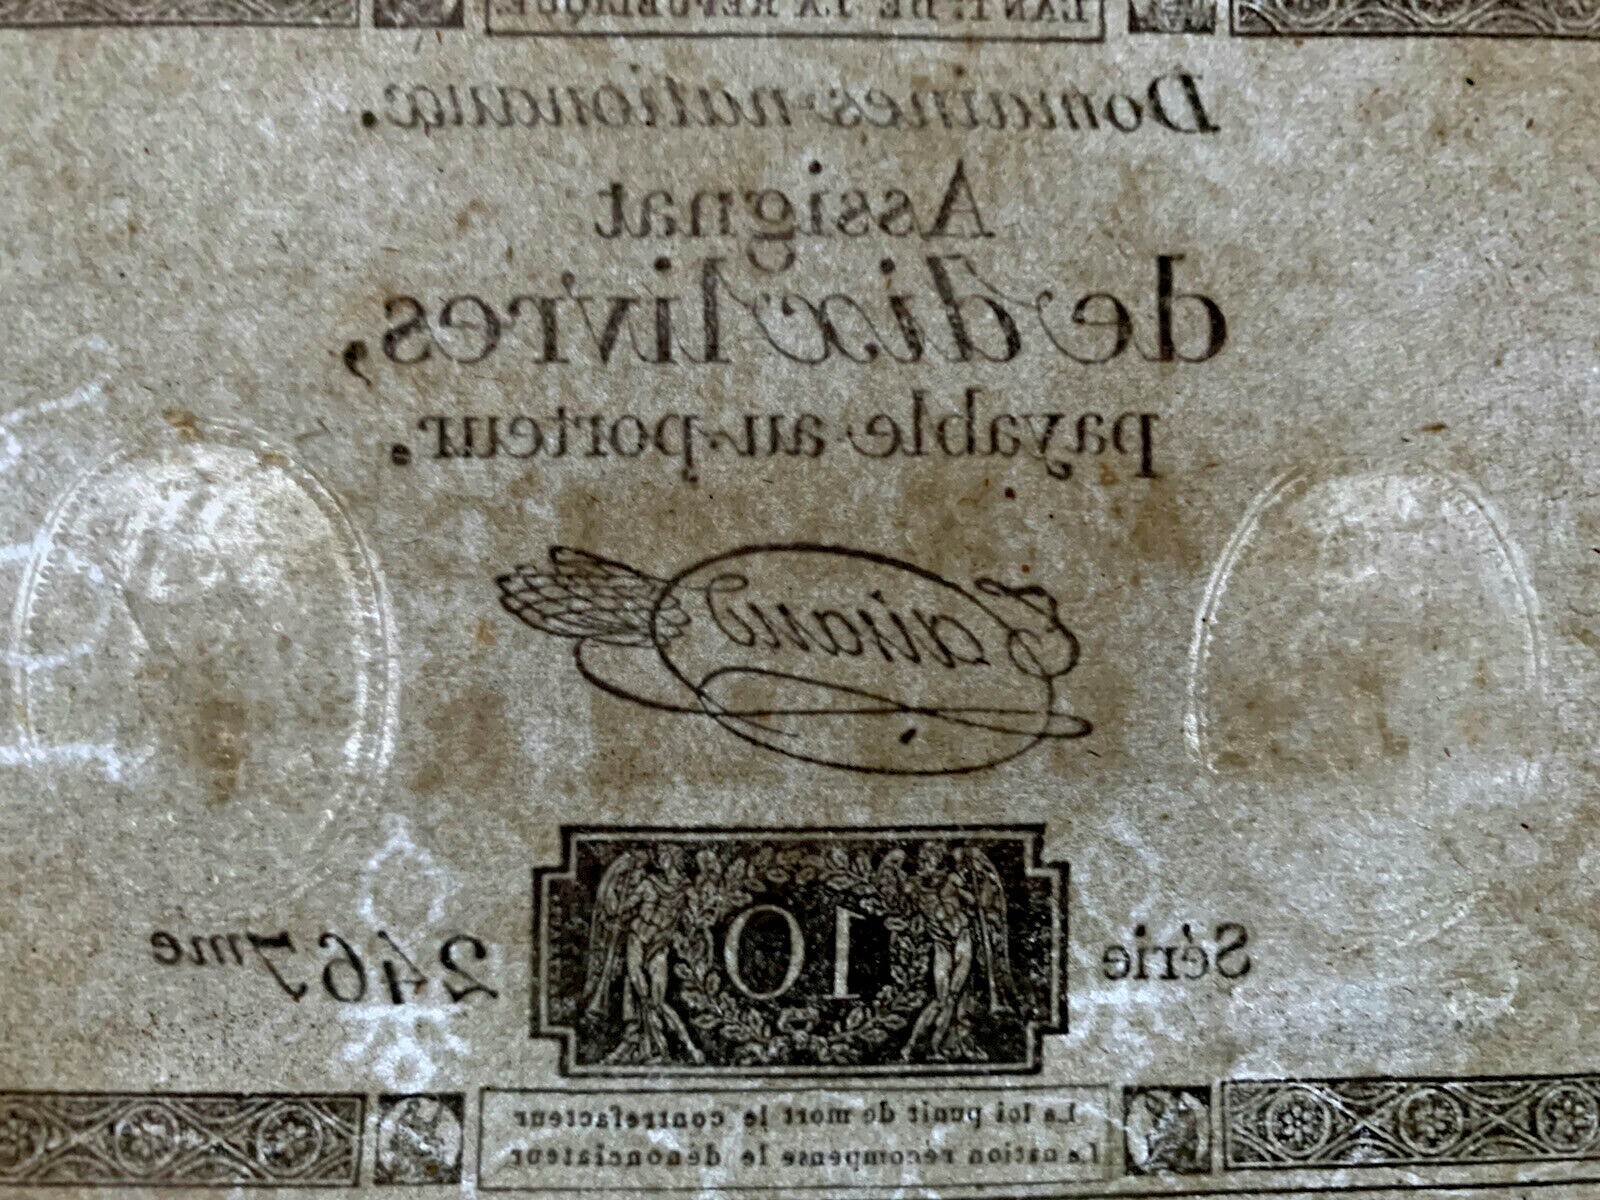 L'AN 1.er DE LA RÉPUBLIQUE.
Domaines nationaux.
Assignat
de dix livres,
payable au porteur.
Taisaud
Série 10 2467me
La loi punit de mort le contrefacteur
La nation recompense le dénonciateur